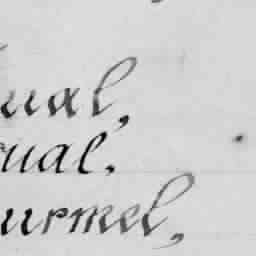 ual,
ual.
urmel,